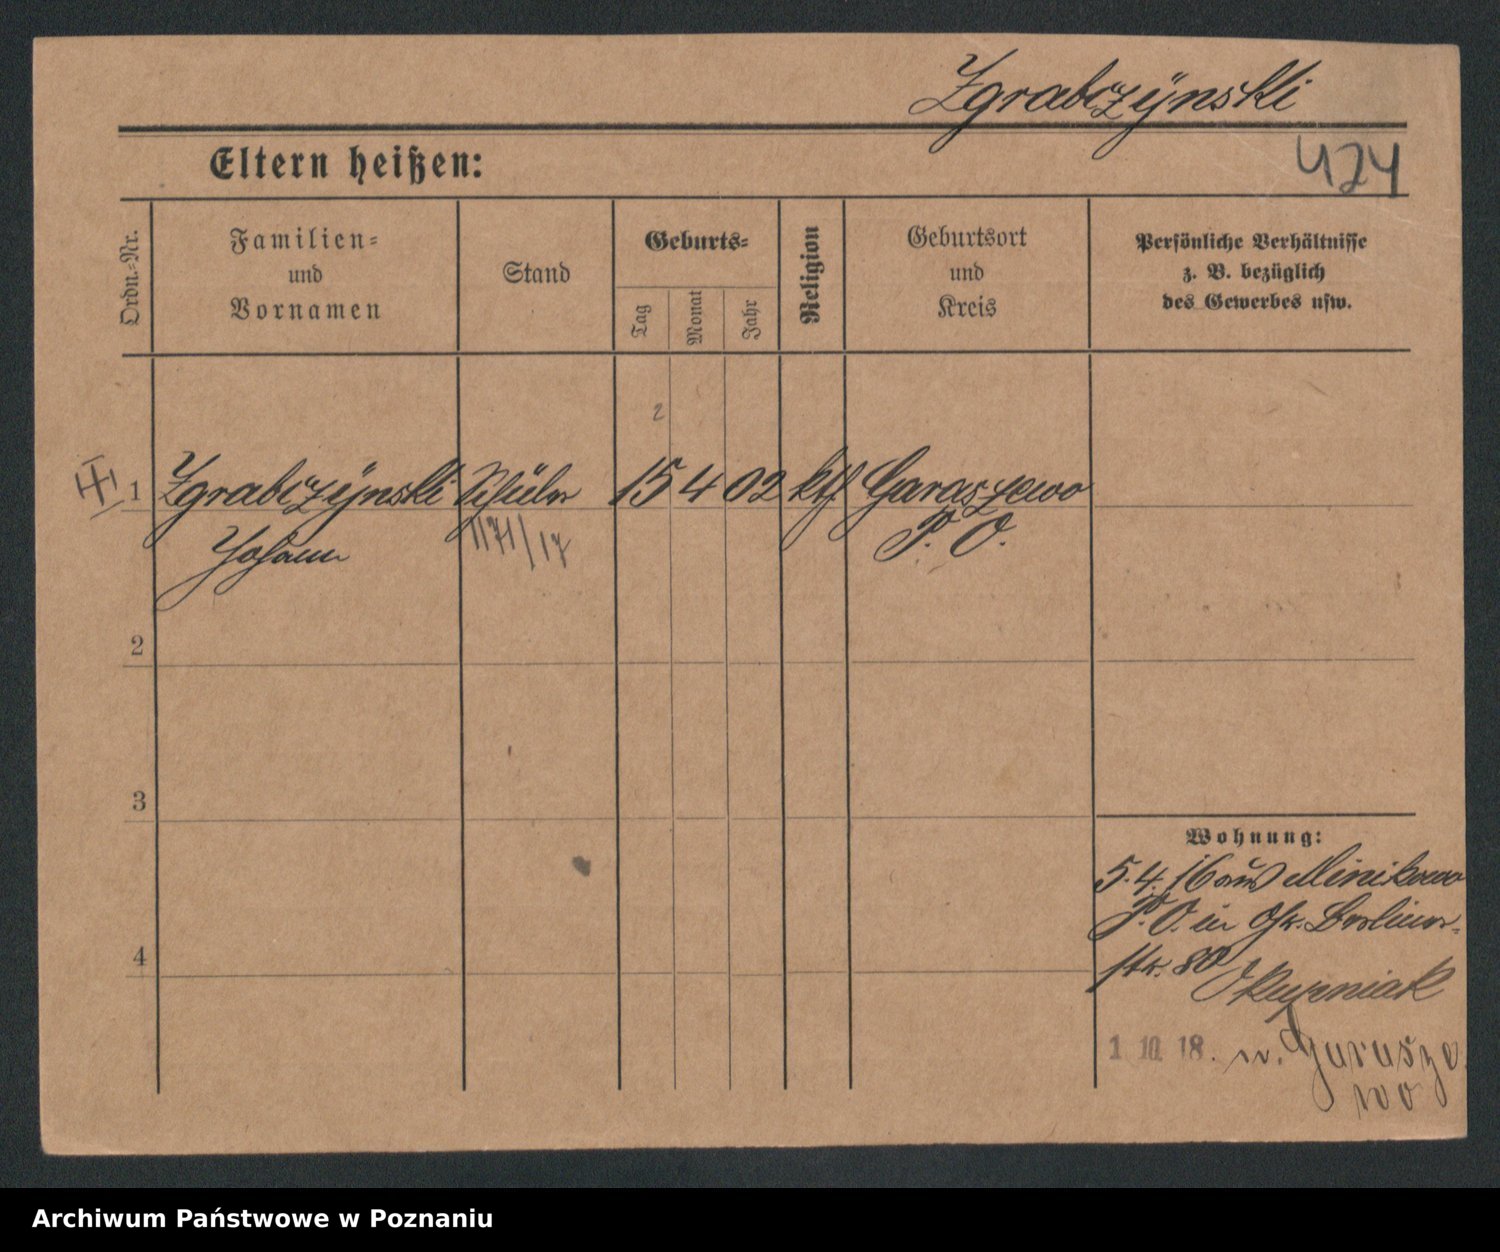 Zgrabczÿnski
424
Eltern heißen:
Ordn.-Nr.
Familien-
und
Vornamen
Stand
Geburts-
Tag
Monat
Jahr
Religion
Geburtsort
und
Kreis
Persönliche Verhältnisse
z. B. bezüglich
des Gewerbes usw.
2
1 Zgrabczÿnski Schüler 15 4 02 kth Garaszewo
Johann 1171/17 P. O.
2
3
4
Wohnung:
5.4.16 aus Minikowo
P. O. in Gr. Berliner-
str. 80
Kupniak
1 10 18. n. Garasze
wo
Archiwum Państwowe w Poznaniu